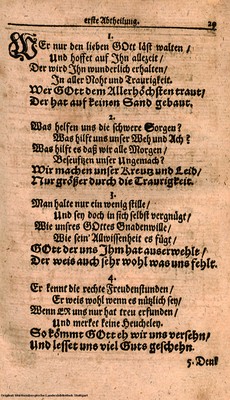 erste Abtheilung. 29
1.
WEr nur den lieben GOtt läst walten /
Und hoffet auf Jhn allezeit /
Der wird Jhn wunderlich erhalten /
Jn aller Noht und Traurigkeit.
Wer GOtt dem Allerhöchsten traut /
Der hat auf keinen Sand gebaut.
2.
Was helfen uns die schwere Sorgen?
Was hilft uns unser Weh und Ach?
Was hilft es daß wir alle Morgen /
Beseufzen unser Ungemach?
Wir machen unser Kreutz und Leid /
Nur größer durch die Traurigkeit.
3.
Man halte nur ein wenig stille /
Und sey doch in sich selbst vergnügt /
Wie unsres GOttes Gnadenwille /
Wie sein Allwissenheit es fügt /
GOtt der uns Jhm hat auserwehlt /
Der weis auch sehr wohl was uns fehlt.
4.
Er kennt die rechte Freudenstunden /
Er weis wohl wenn es nützlich sey /
Wenn ER uns nur hat treu erfunden /
Und merket keine Heucheley.
So kömmt GOtt eh wir uns versehn /
Und lesset uns viel Guts geschehn.
5. Denk
Original: Württembergische Landesbibliothek Stuttgart